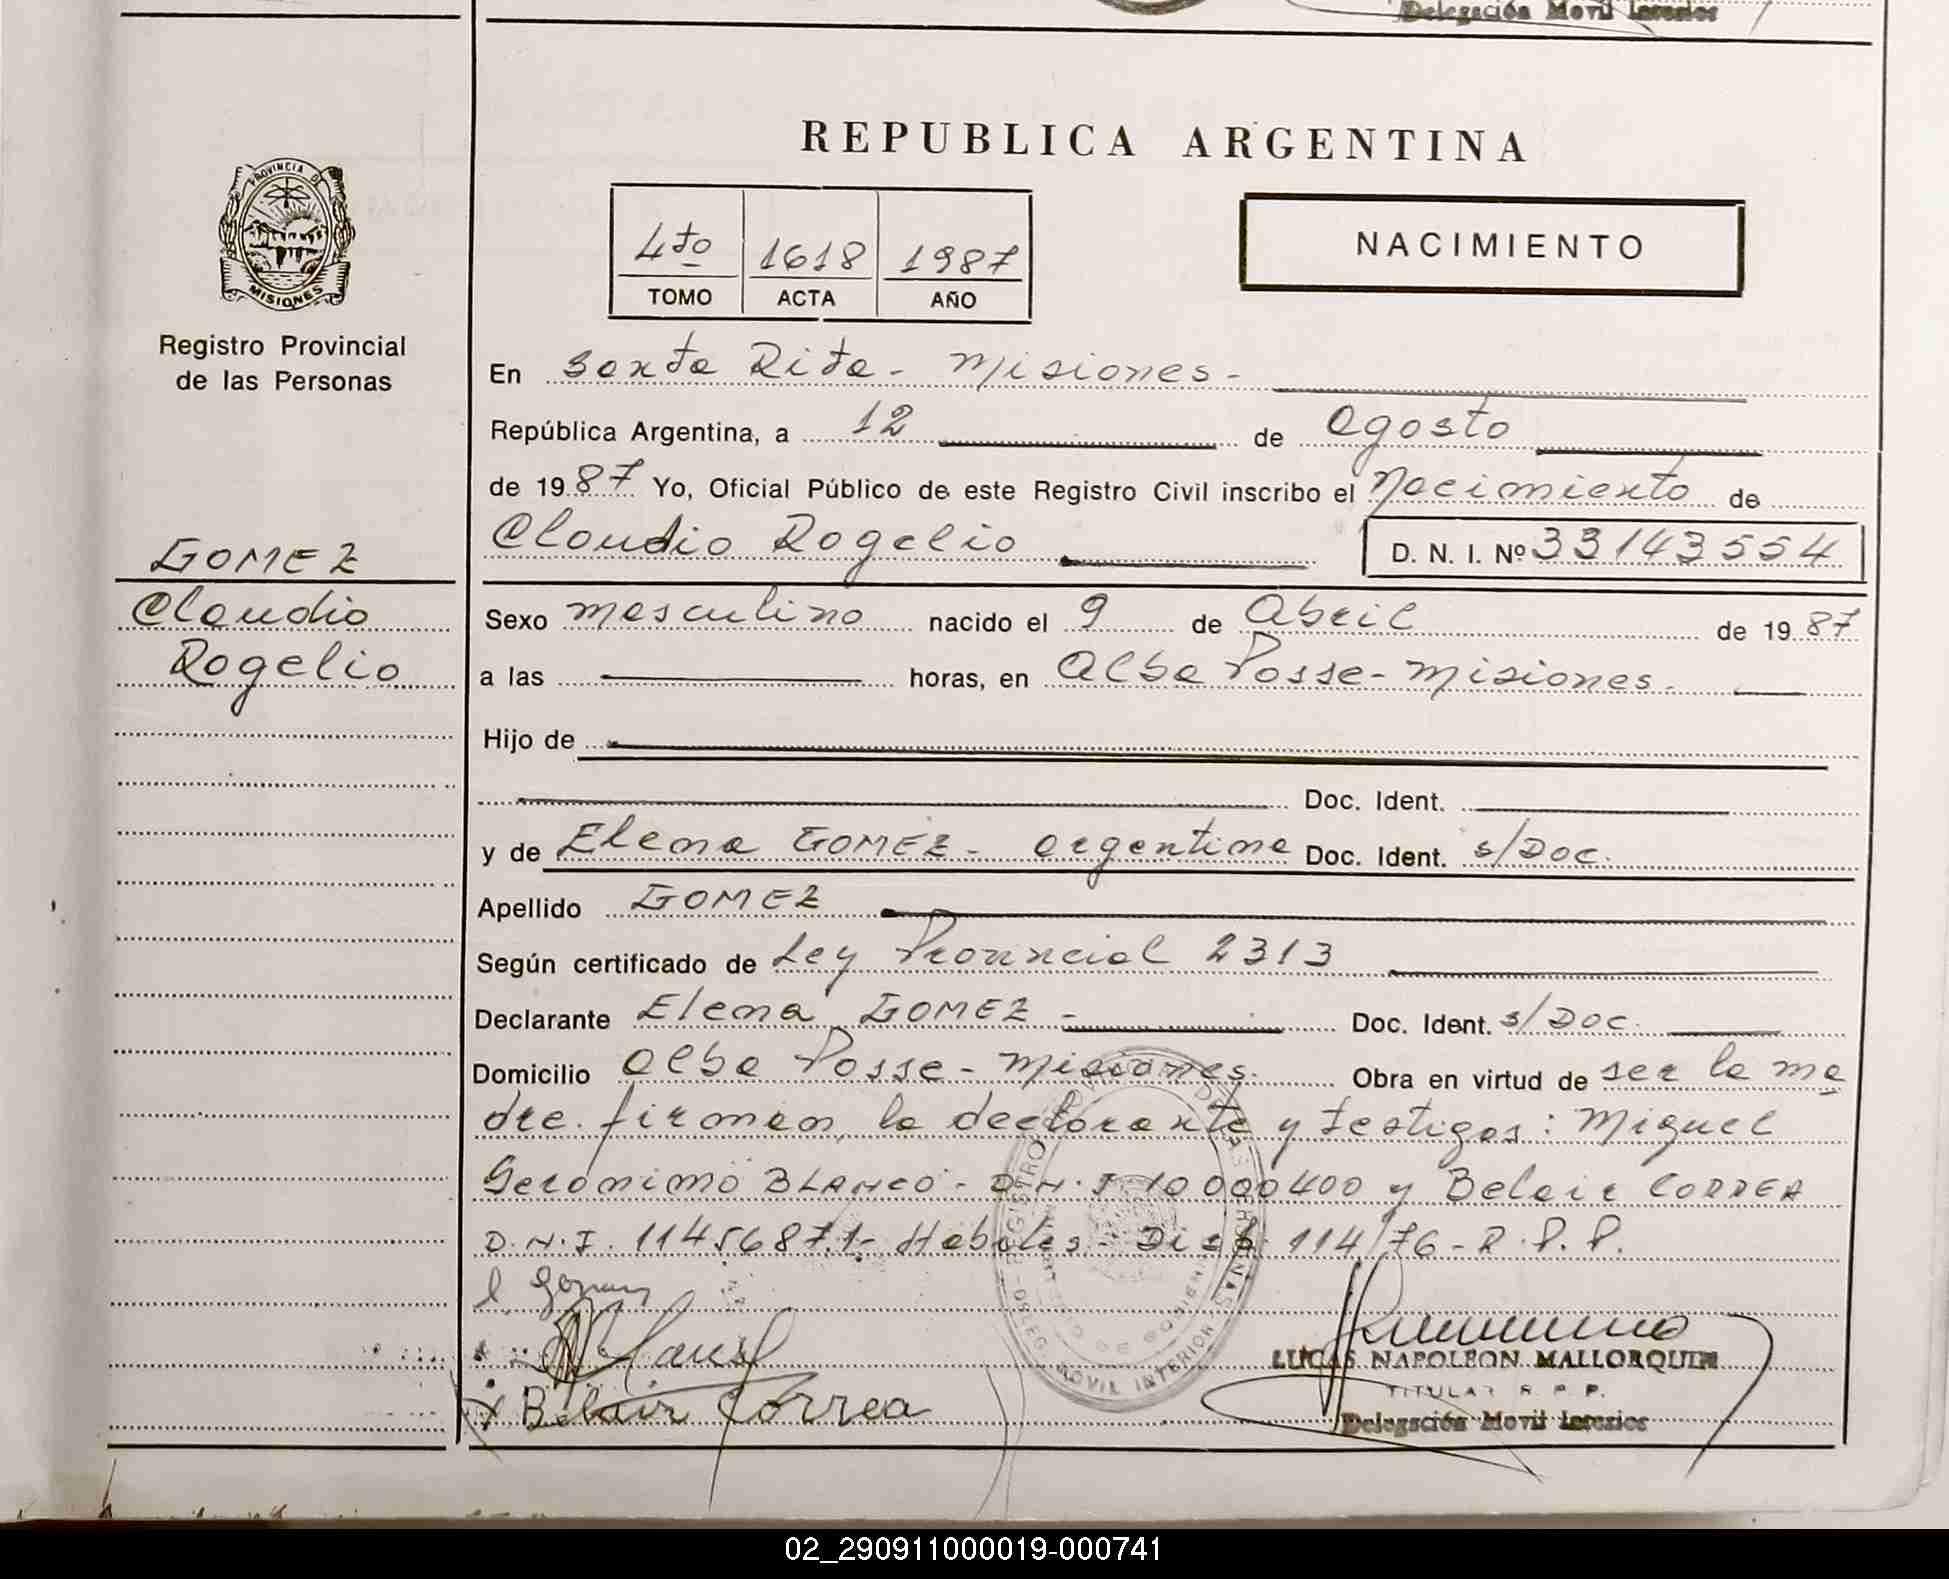 Delegación Movil Interior
REPUBLICA ARGENTINA
PROVINCIA DE
MISIONES
Registro Provincial
de las Personas
4to 1618 1987
TOMO ACTA AÑO
NACIMIENTO
En Santa Rita - Misiones -
República Argentina, a 12 de agosto
de 1987 Yo, Oficial Público de este Registro Civil inscribo el Nacimiento de
Claudio Rogelio D. N. I. Nº 33143554
GOMEZ
Claudio
Rogelio
Sexo masculino nacido el 9 de Abril de 1987
a las horas, en Alba Posse - Misiones.
Hijo de
Doc. Ident.
y de Elena GOMEZ - argentina Doc. Ident. s/Doc.
Apellido GOMEZ
Según certificado de Ley Provincial 2313
Declarante Elena GOMEZ - Doc. Ident. s/Doc.
Domicilio Alba Posse - Misiones. Obra en virtud de ser la ma
dre. firman, la declarante y testigos: Miguel
Gerónimo BLANCO - D.N.I 10000400 y Belair CORREA
D.N.I. 11456871- Habiles - Disp. 114/76 - R.P.P.
E Gomez
Belair Correa
LUCAS NAPOLEON MALLORQUIN
TITULAR R. P. P.
Delegación Movil Interior
02_290911000019-000741